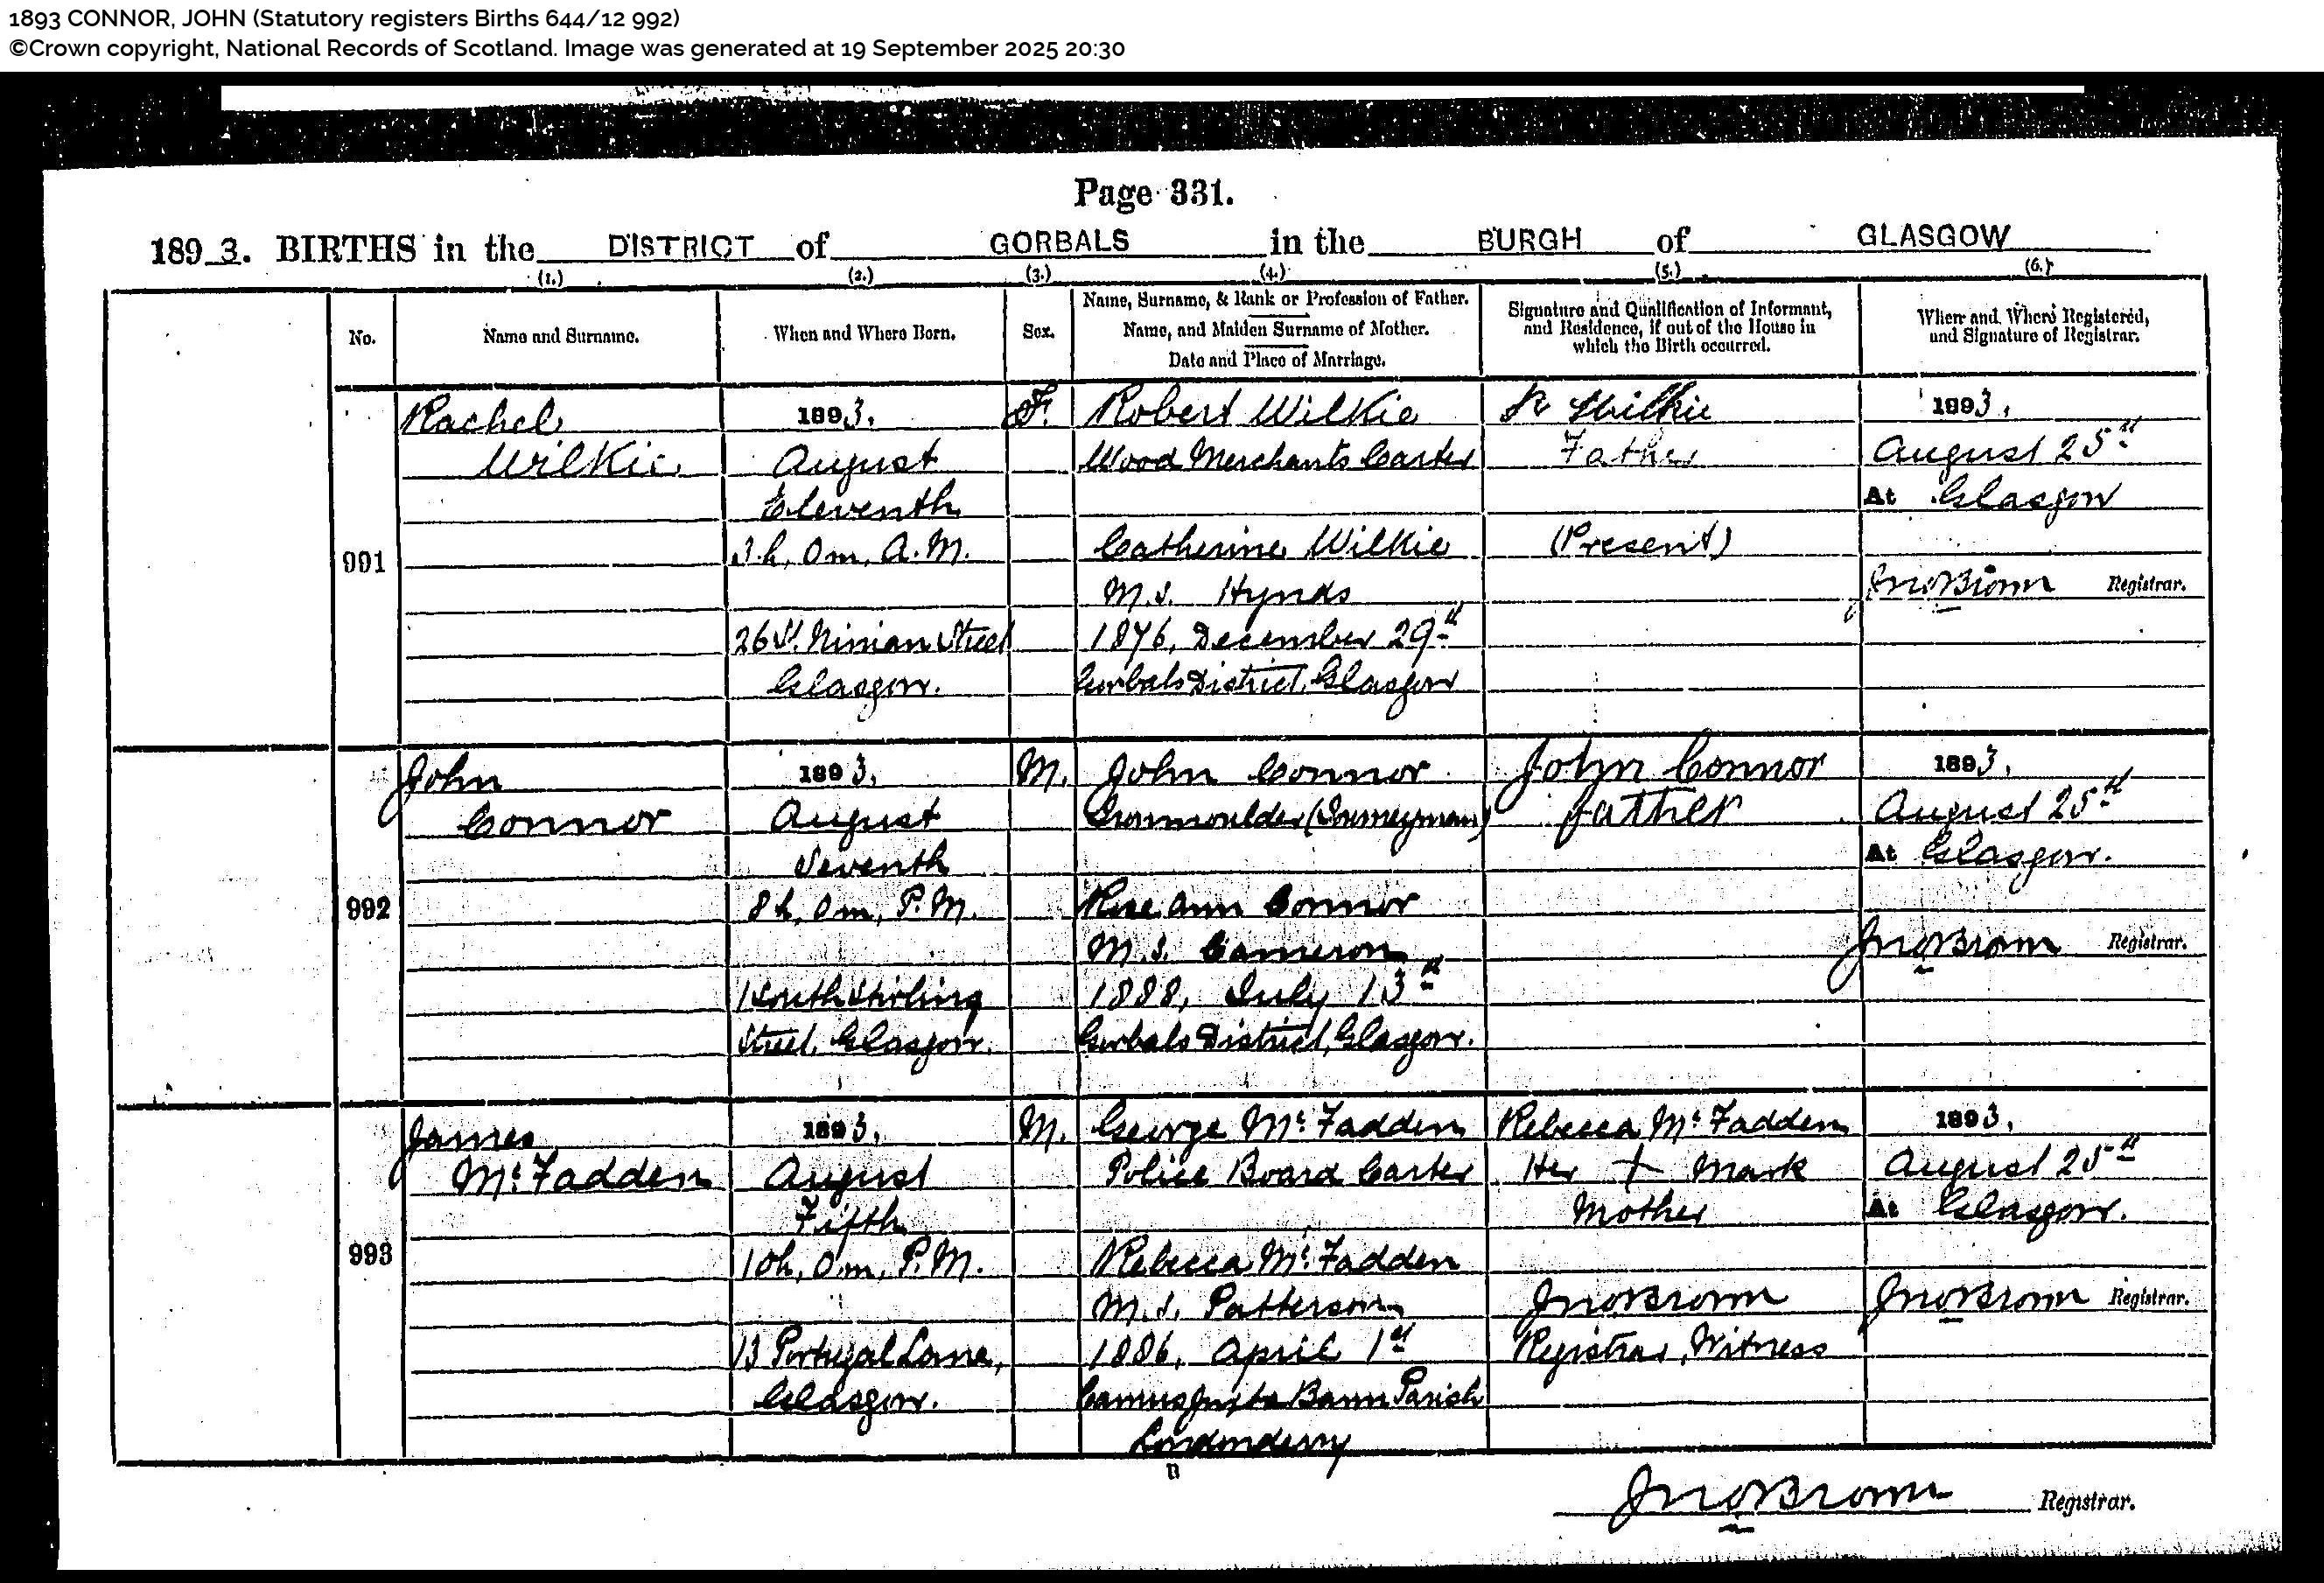 1893 CONNOR, JOHN (Statutory registers Births 644/12 992)
©Crown copyright, National Records of Scotland. Image was generated at 19 September 2025 20:30
Page 331.
1893. BIRTHS in the DISTRICT of GORBALS in the BURGH of GLASGOW
(1.) (2.) (3.) (4.) (5.) (6.)
No.
Name and Surname.
When and Where Born.
Sex.
Name, Surname, & Rank or Profession of Father.
Name, and Maiden Surname of Mother.
Date and Place of Marriage.
Signature and Qualification of Informant,
and Residence, if out of the House in
which the Birth occurred.
When and Where Registered,
and Signature of Registrar.
991
Rachel
Wilkie
1893.
August
Eleventh
3h, 0m, A.M.
26 St. Ninian Street
Glasgow.
F.
Robert Wilkie
Wood Merchants Carter
Catherine Wilkie
M.S. Hynds
1876, December 29th
Gorbals District, Glasgow
R Wilkie
Father
(Present)
1893.
August 25th
At Glasgow
Jno Brown Registrar.
992
John
Connor
1893.
August
Seventh
8h, 0m, P.M.
1 South Stirling
Street, Glasgow.
M.
John Connor
Ironmoulder (Journeyman)
Rose Ann Connor
M.S. Cameron
1888, July 13th
Gorbals District, Glasgow.
John Connor
father
1893.
August 25th
At Glasgow.
Jno Brown Registrar.
993
James
McFadden
1893.
August
Fifth
10h, 0m, P.M.
13 Portugal Lane,
Glasgow.
M.
George McFadden
Police Board Carter
Rebecca McFadden
M.S. Patterson
1886, April 1st
Bann Parish
Londonderry
Rebecca McFadden
Her + Mark
Mother
Jno Brown
Registrar, Witness
1893.
August 25th
At Glasgow.
Jno Brown Registrar.
Jno Brown Registrar.